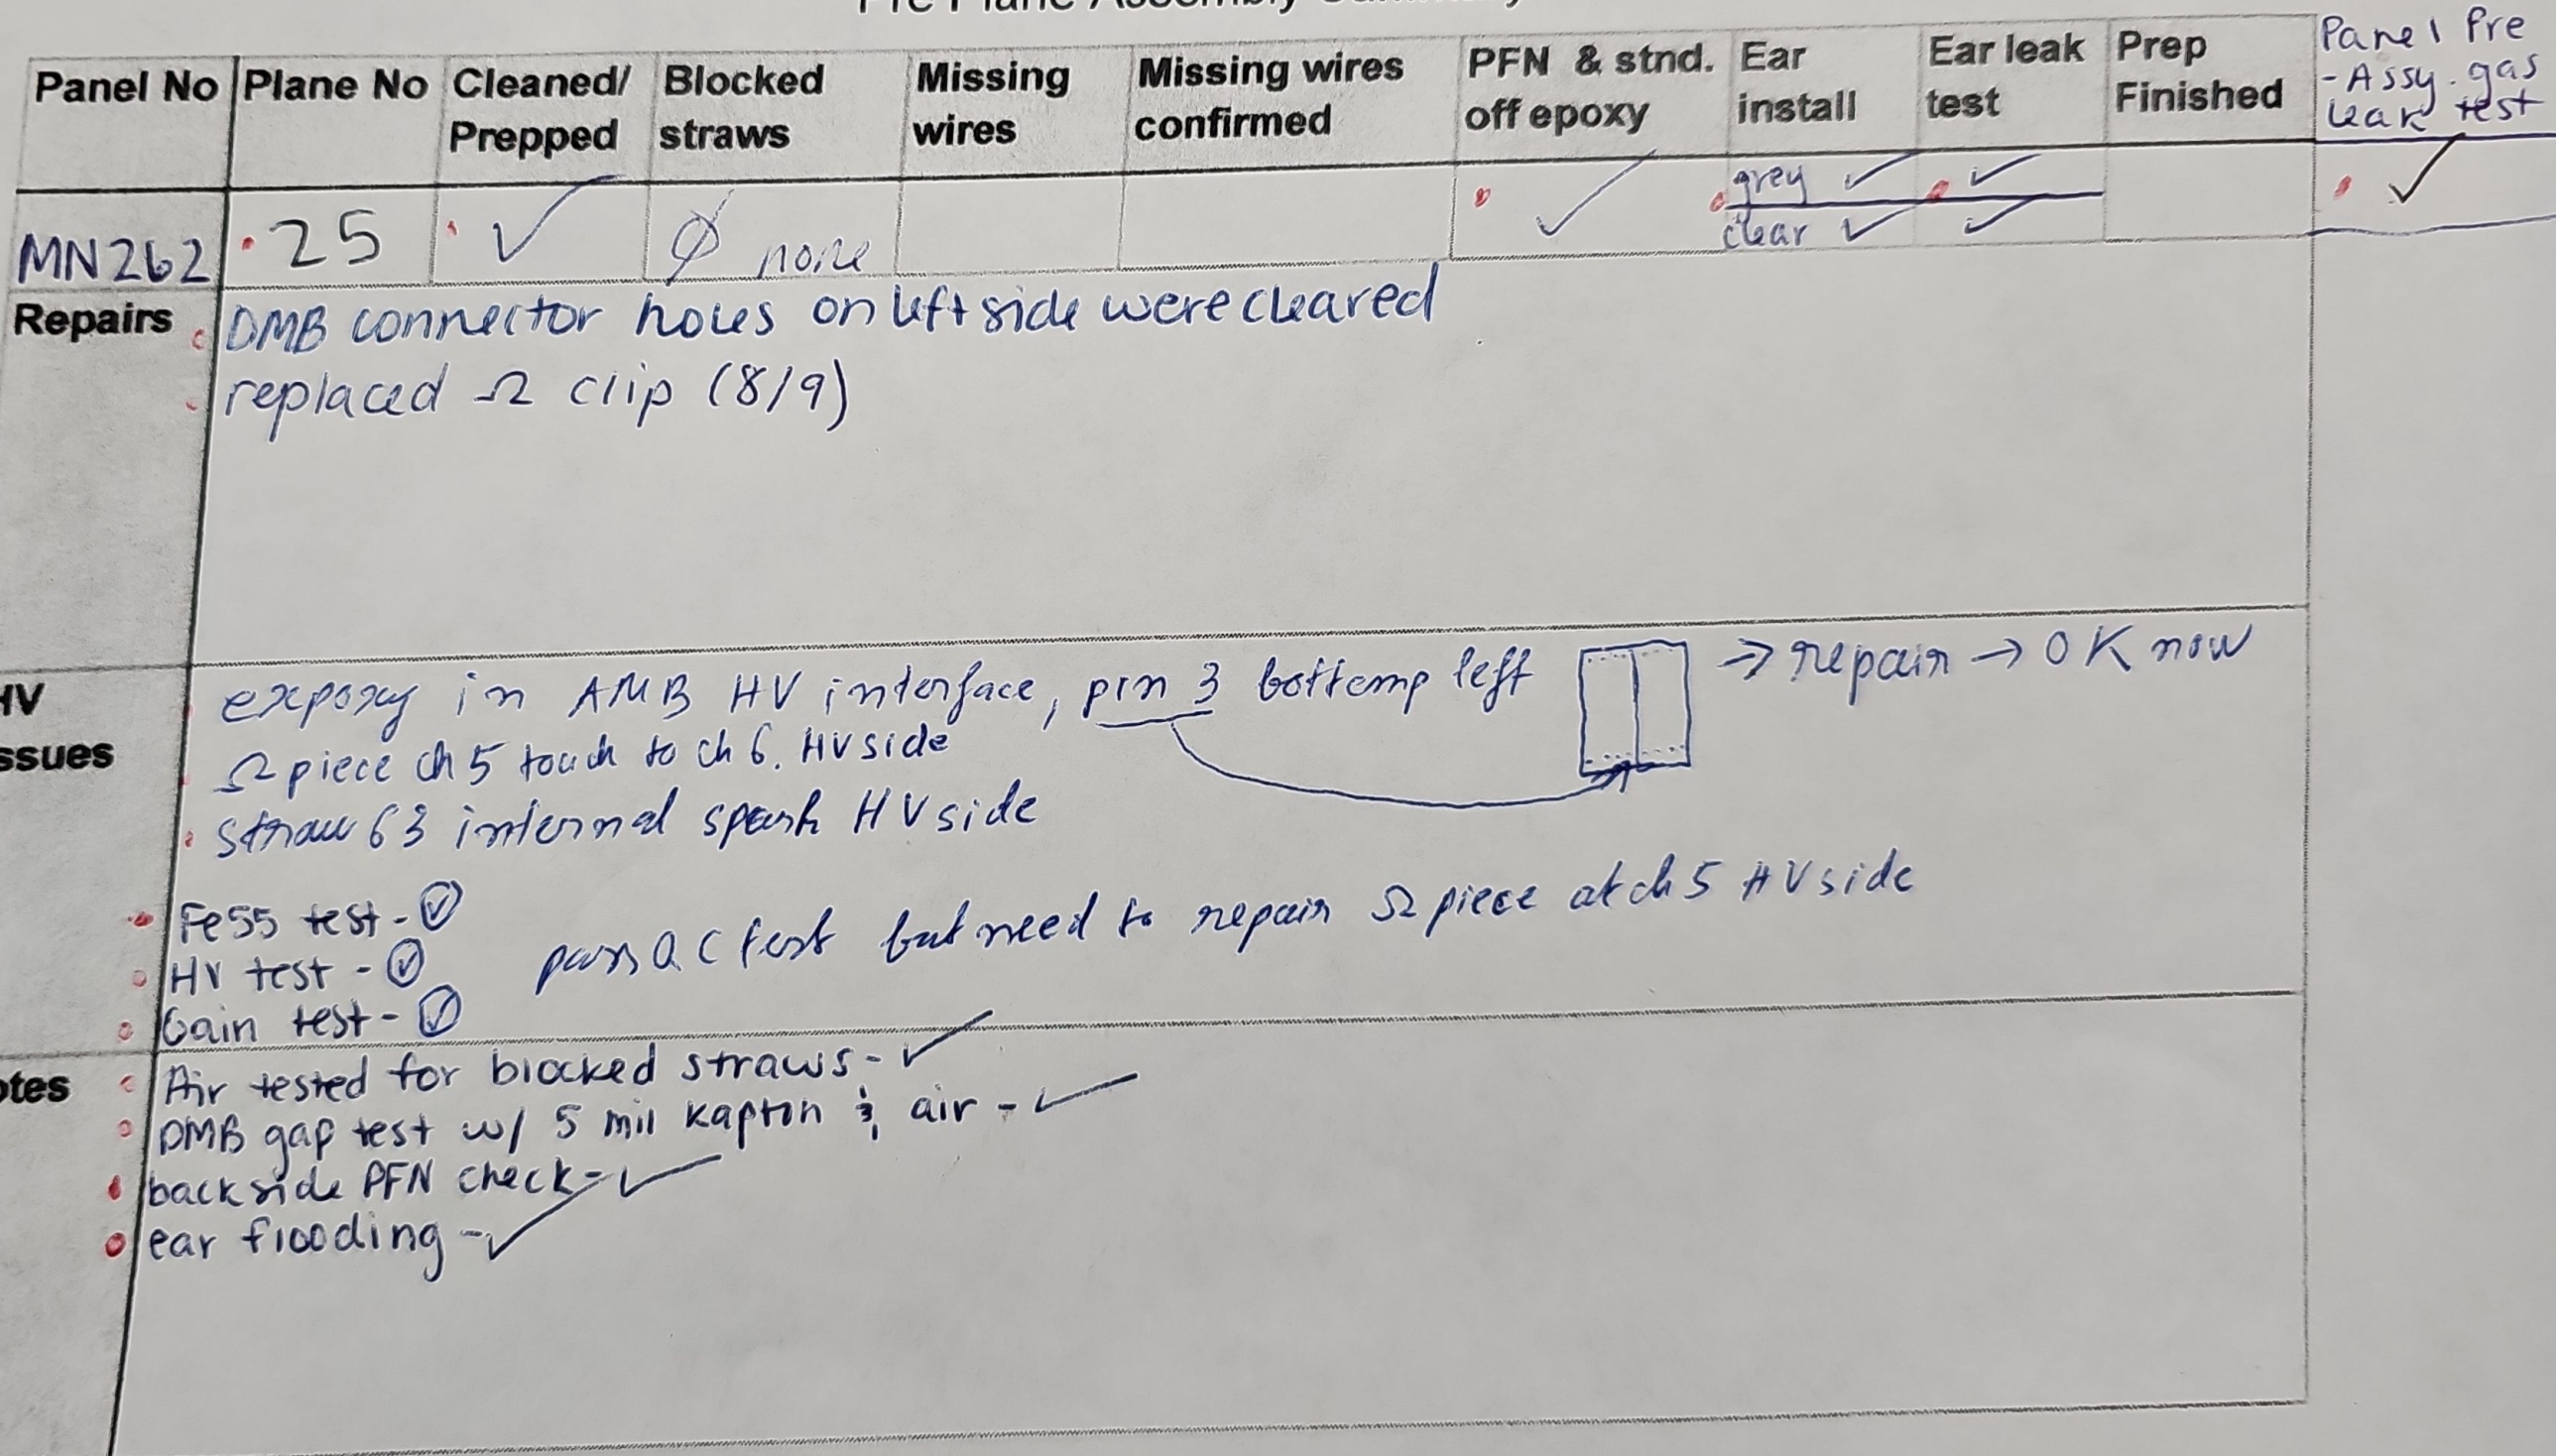 Pre Plane Assembly Summary
Panel No Plane No Cleaned/ Prepped Blocked straws Missing wires Missing wires confirmed PFN & stnd. off epoxy Ear install Ear leak test Prep Finished Panel Pre - Assy. gas leak test
MN262 25 ✓ ∅ none ✓ grey ✓ ✓ ✓
clear ✓ ✓
Repairs DMB connector holes on left side were cleared
replaced Ω clip (8/9)
HV ssues
expoxy in AMB HV interface, pin 3 bottomp left → repair → OK now
Ω piece ch 5 touch to ch 6. HV side
straw 63 internal spark HV side
Fe55 test - ✓
HV test - ✓
pass QC test but need to repair Ω piece at ch 5 HV side
Gain test - ✓
otes Air tested for blocked straws - ✓
DMB gap test w/ 5 mil kapton & air - ✓
backside PFN check - ✓
ear flooding - ✓